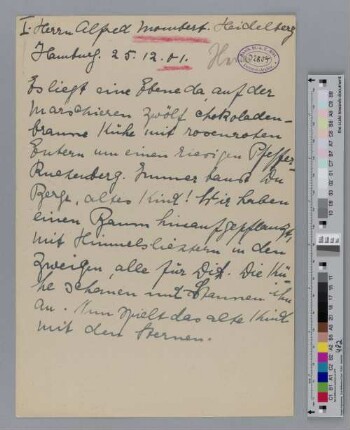 I. Herrn Alfred Mombert. Heidelberg
Hamburg. 25.12.01.
Es liegt eine Ebene da, auf der
marschieren zwölf chokoladen-
braune Kühe mit rosenroten
Eutern um einen riesigen Pfeffer-
Kuchenberg. Immer baust Du
Berge, altes Kind! Wir haben
einen Baum hinaufgepflanzt,
mit Himmelslichtern in den
Zweigen, alle für Dich. Die Kü-
he schauen mit Staunen ihn
an. Nun spielt das alte Kind
mit den Sternen.